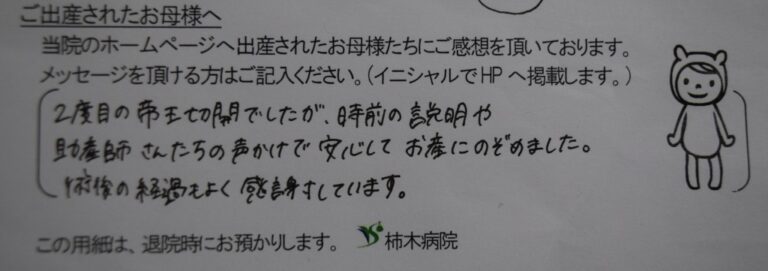 ご出産されたお母様へ
当院のホームページへ出産されたお母様たちにご感想を頂いております。
メッセージを頂ける方はご記入ください。(イニシャルでHPへ掲載します。)
2度目の帝王切開でしたが、時前の説明や
助産師さんたちの声かけで安心してお産にのぞめました。
術後の経過もよく感謝しています。
この用紙は、退院時にお預かりします。 柿木病院